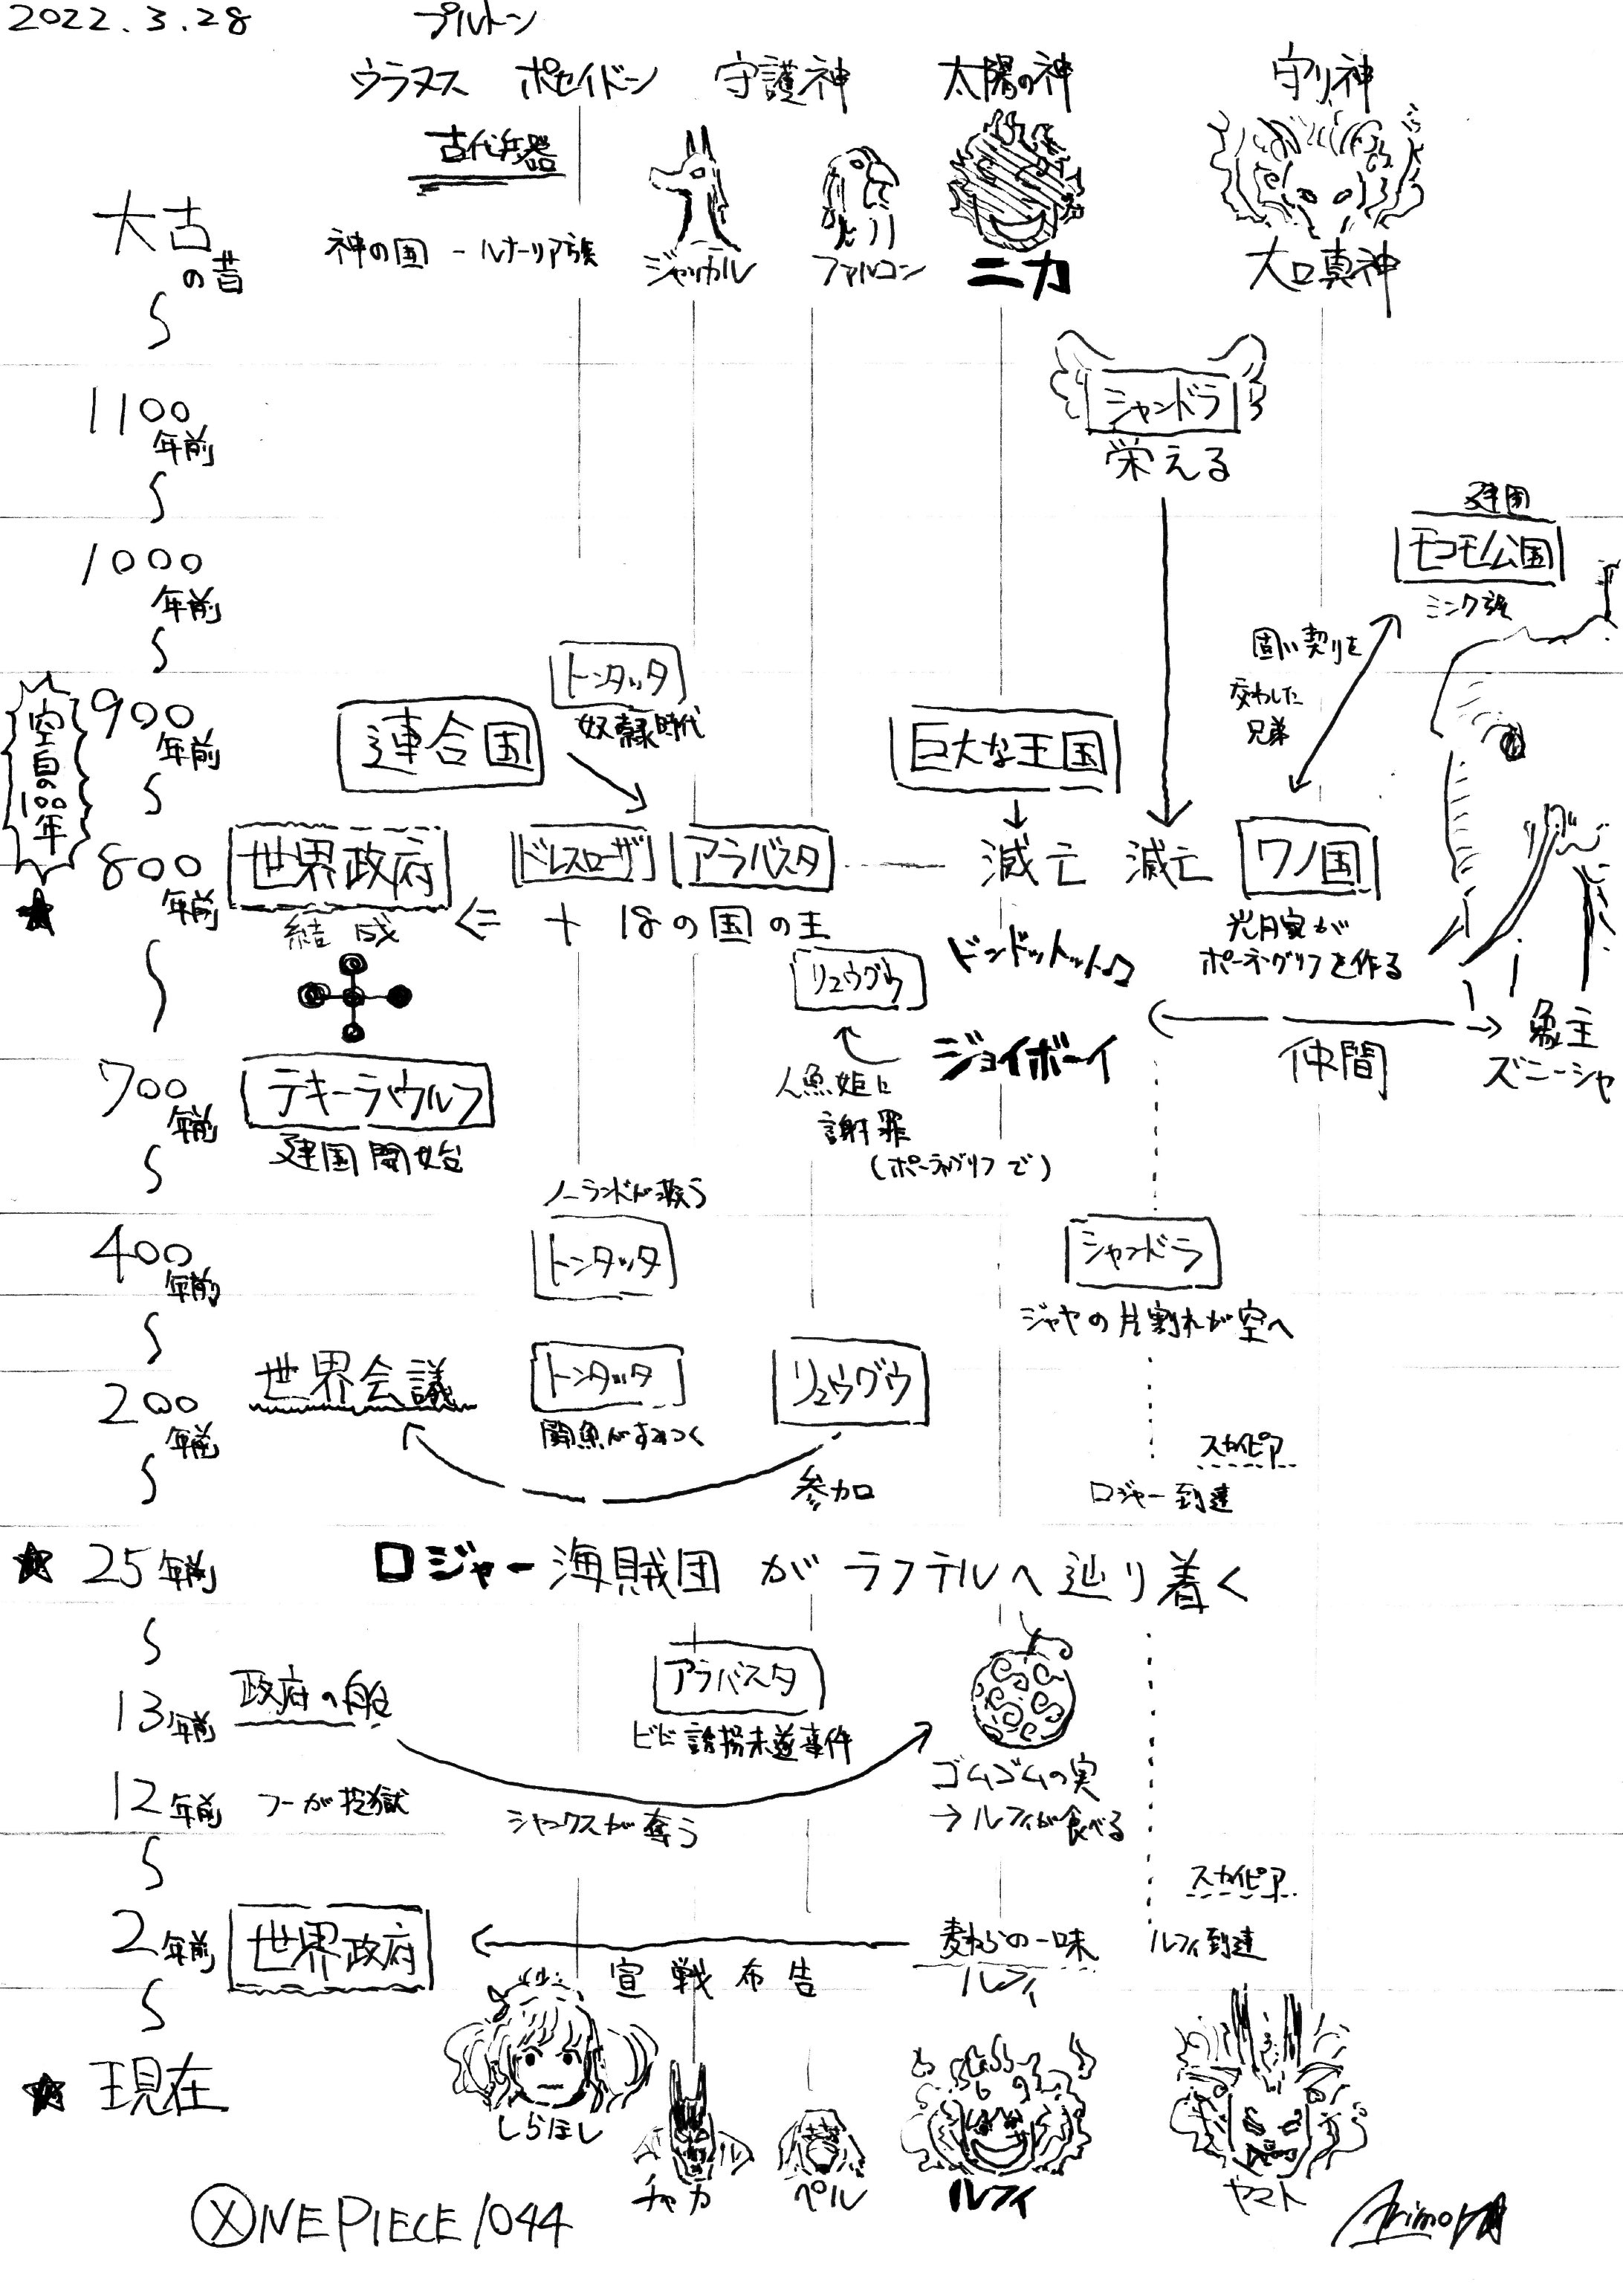 2022.3.28
プルトン
ウラヌス ポセイドン 守護神 太陽の神 守り神
古代兵器
大古の昔
神の国 - ルナーリア族
ジャッカル ファルコン ニカ 大口真神
1100年前
シャンドラ
栄える
建国
モコモ公国
ミンク族
1000年前
固い契りを
交わした
兄弟
トンタッタ
奴隷時代
空白の100年
900年前
連合国
巨大な王国
800年前
世界政府
結成
ドレスローザ
アラバスタ
滅亡 滅亡
ワノ国
⇐ + 18の国の王
光月家が
ポーネグリフを作る
リュウグウ
ドンドットット♫
ジョイボーイ
仲間
象主
ズニーシャ
人魚姫に
謝罪
(ポーネグリフで)
700年前
テキーラウルフ
建国開始
ノーランドが救う
400年前
トンタッタ
シャンドラ
ジャヤの片割れが空へ
200年前
世界会議
トンタッタ
闘魚がすみつく
リュウグウ
参加
スカイピア
ロジャー到達
25年前
ロジャー海賊団がラフテルへ辿り着く
13年前
政府の船
アラバスタ
ビビ誘拐未遂事件
ゴムゴムの実
→ルフィが食べる
12年前
フーが投獄
シャンクスが奪う
スカイピア
ルフィ到達
2年前
世界政府
宣戦布告
麦わらの一味
ルフィ
現在
しらほし
チャカ
ペル
ルフィ
ヤマト
ⓍNE PIECE 1044